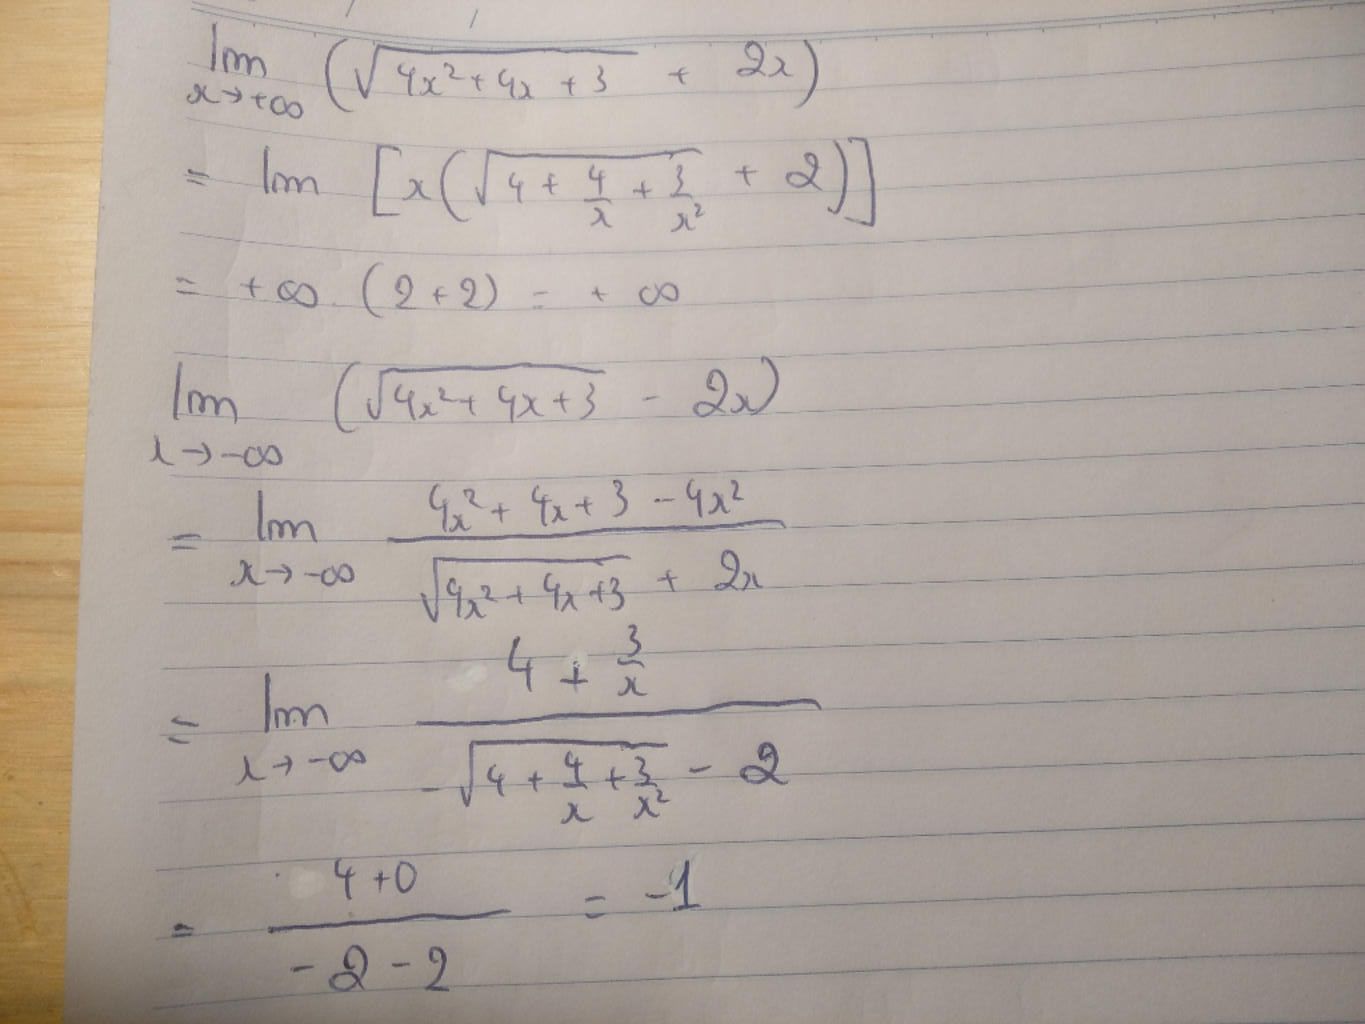 lim (√(4x² + 4x + 3) + 2x)
x→+∞
= lim [x(√(4 + 4/x + 3/x²) + 2)]
= +∞ . (2 + 2) = + ∞
lim (√(4x² + 4x + 3) - 2x)
x→-∞
= lim (4x² + 4x + 3 - 4x²) / (√(4x² + 4x + 3) + 2x)
x→-∞
= lim (4 + 3/x) / (-√(4 + 4/x + 3/x²) - 2)
x→-∞
= (4 + 0) / (-2 - 2) = -1